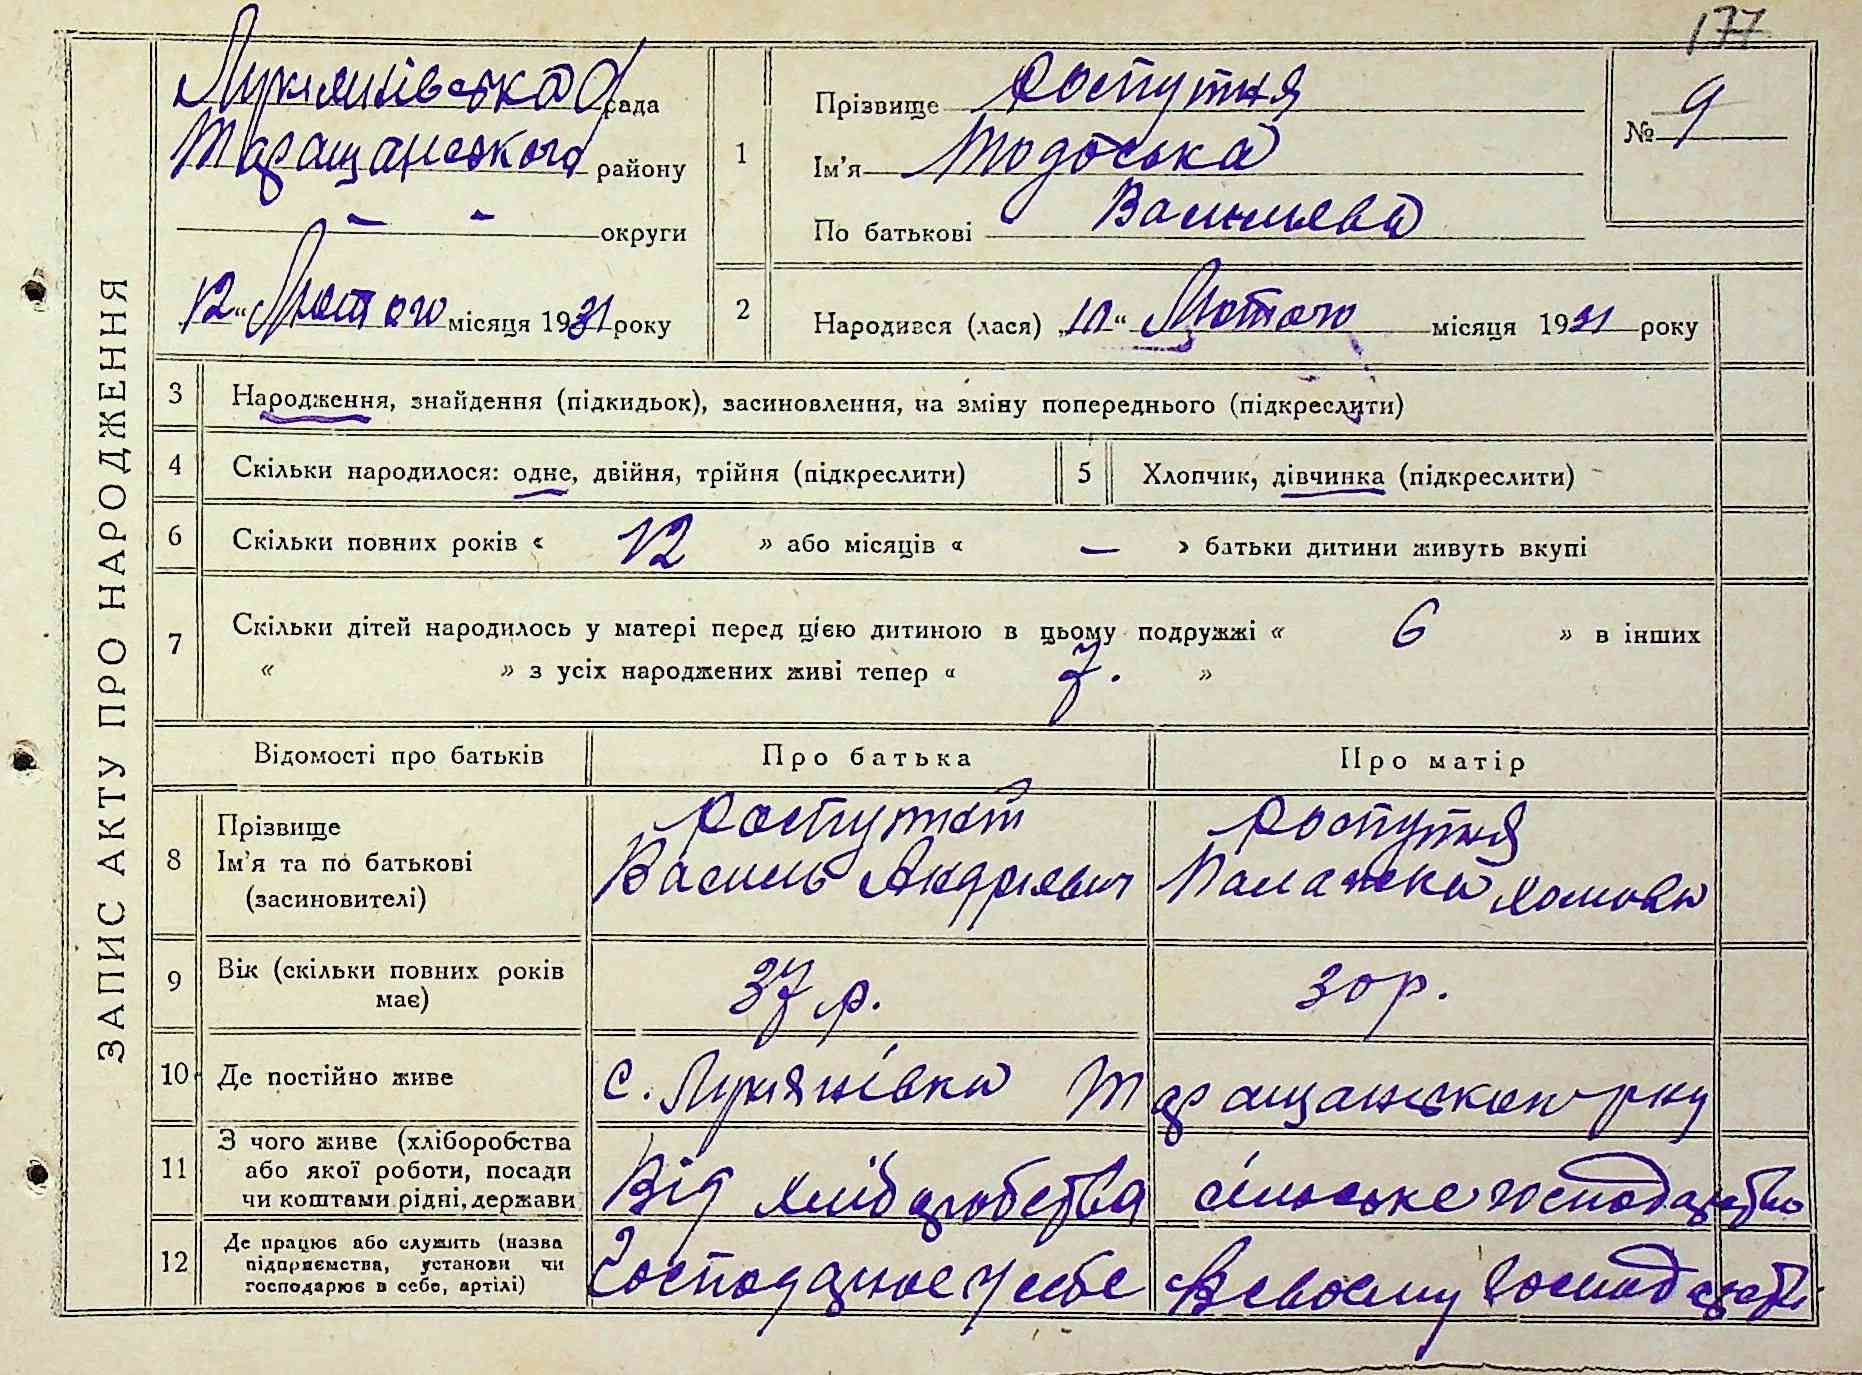 177
ЗАПИС АКТУ ПРО НАРОДЖЕННЯ
Лукянівська рада
Таращанського району
— — округи
12 "Лютого місяця 1931 року
1
Прізвище Роспутня
Ім'я Тодоська
По батькові Васильева
№ 9
2
Народився (лася) „ " Лютого місяця 1931 року
3 Народження, знайдення (підкидьок), засиновлення, на зміну попереднього (підкреслити)
4 Скільки народилося: одне, двійня, трійня (підкреслити)
5 Хлопчик, дівчинка (підкреслити)
6 Скільки повних років « 12 » або місяців « — » батьки дитини живуть вкупі
7 Скільки дітей народилось у матері перед цією дитиною в цьому подружжі « 6 » в інших
« » з усіх народжених живі тепер « 7. »
Відомості про батьків Про батька Про матір
8 Прізвище
Ім'я та по батькові
(засиновителі)
Василь Андрієвич
Роспутня
Палажка Хомова
9 Вік (скільки повних років
має)
37 р.
30 р.
10 Де постійно живе
с. Лукянівка Таращанського рну
11 З чого живе (хліборобства
або якої роботи, посади
чи коштами рідні, держави
Від хліборобства
сільське господарство
12 Де працює або служить (назва
підприємства, установи чи
господарює в себе, артілі)
Господарює у себе
В своєму господарстві